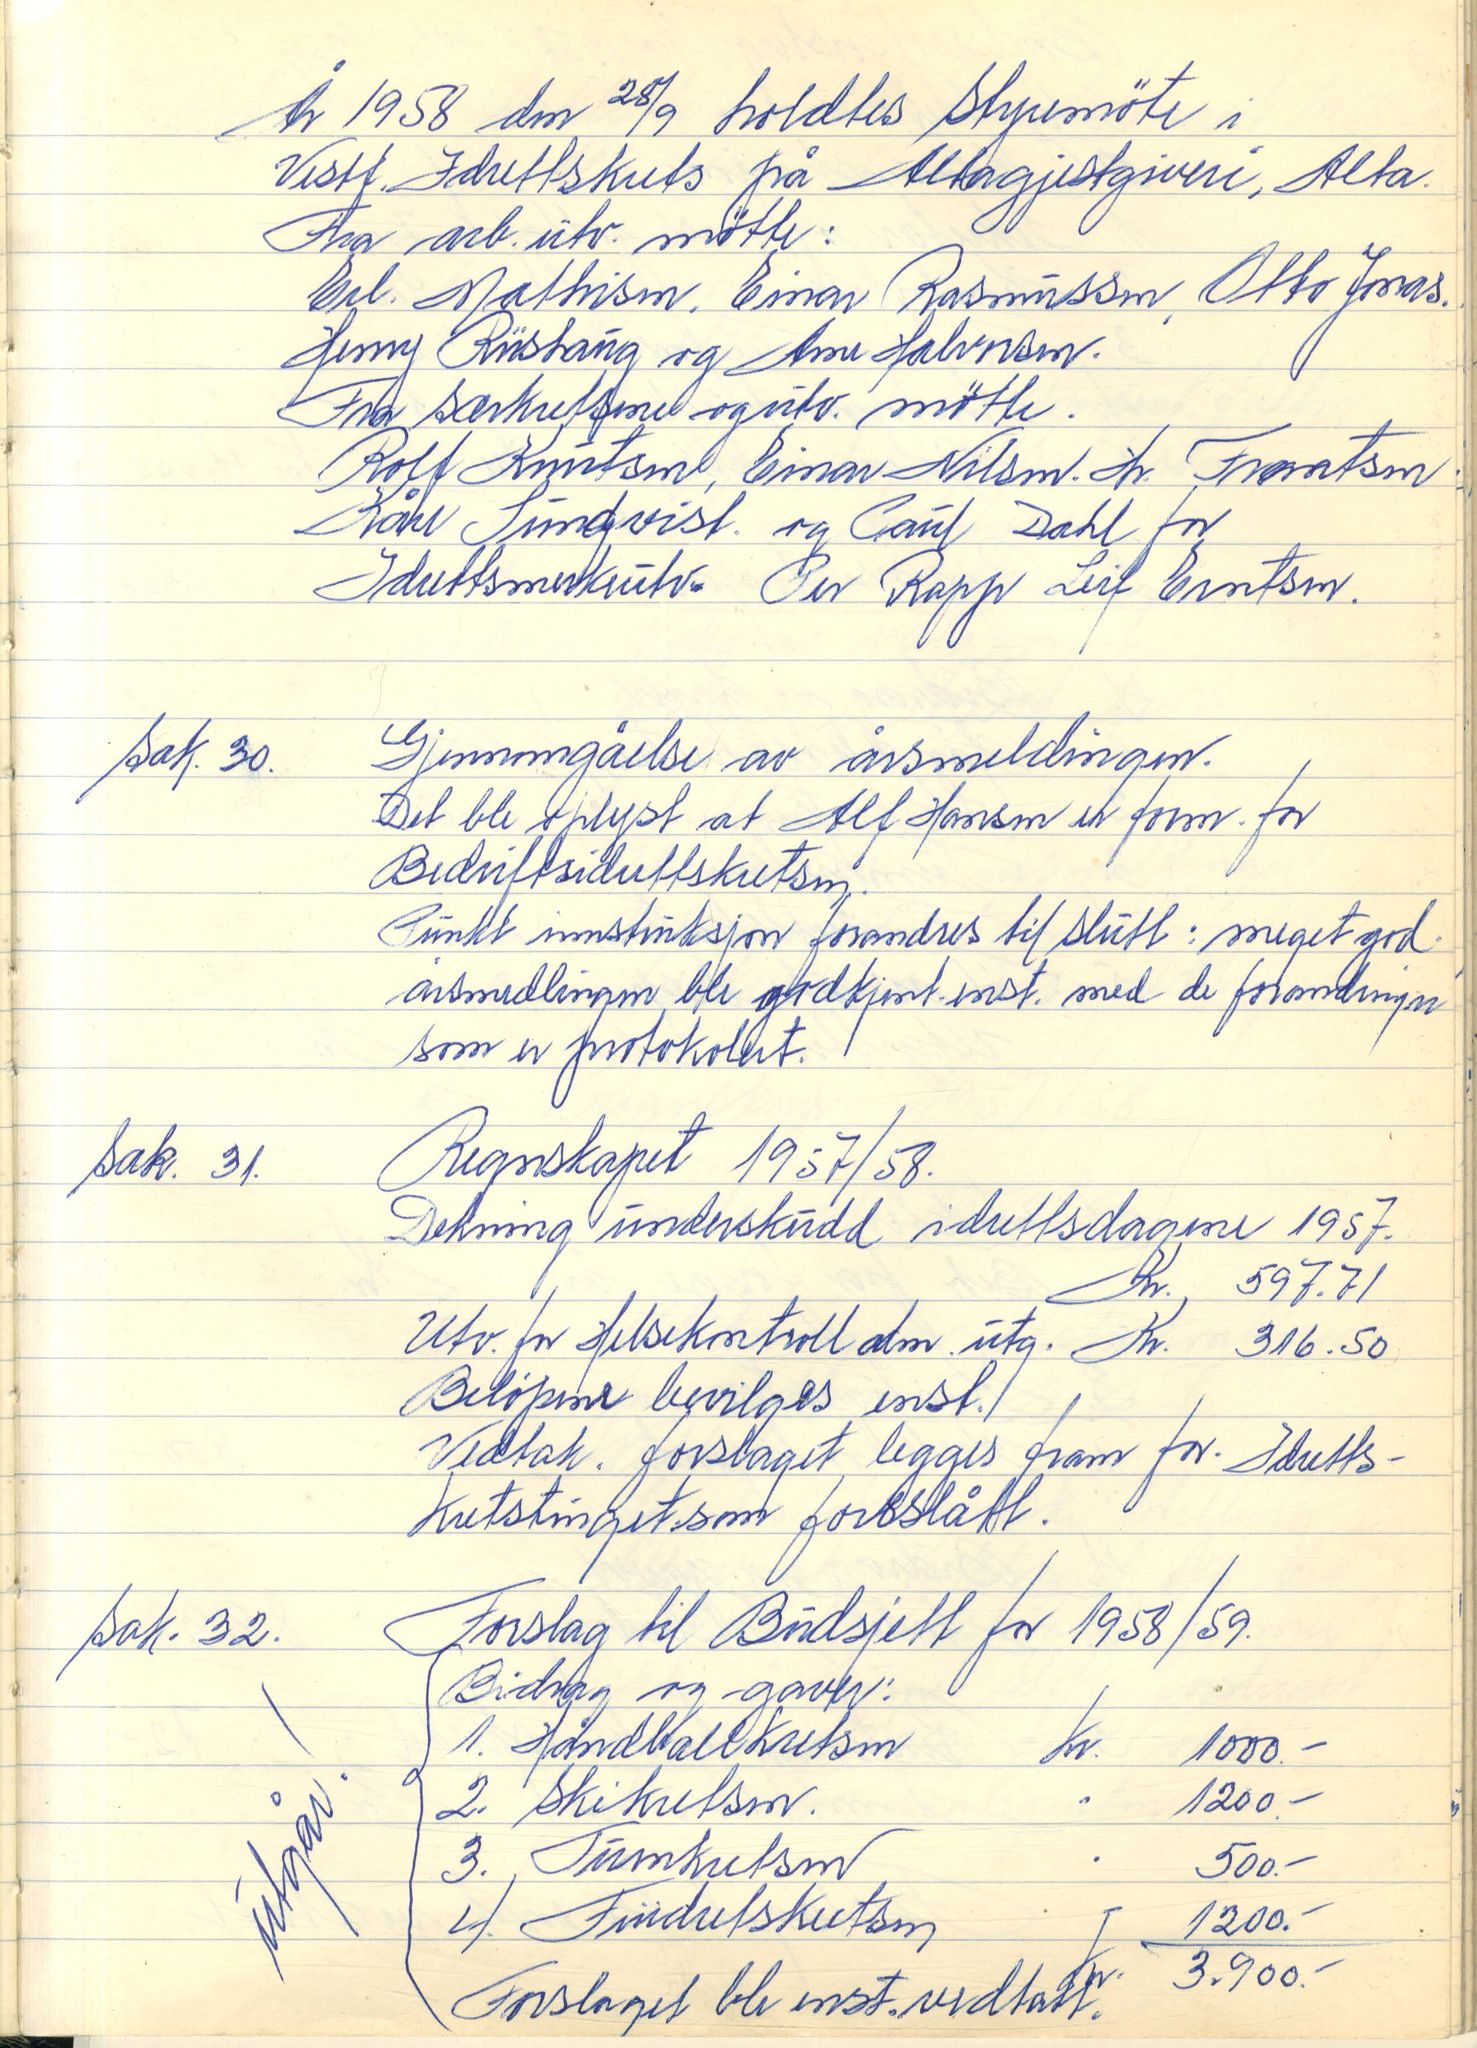 År 1958 den 28/9 holdtes styremöte i
Vestf. Idrettskrets på Altagjestgiveri, Alta.
Fra arb. utv. mötte:
Erl. Mathisen, Einar Rasmussen, Otto Jonas.
Henny Riishaug og Arne Halvorsen.
Fra særkretsene og utv. mötte.
Rolf Knutsen, Einar Nilsen. Hr. Frantsen.
Kåre Sundqvist. og Paul Dahl for
Idrettsmerkeutv. Per Rapp Leif Erntsen.
Sak. 30. Gjennomgåelse av årsmeldingen.
Det ble oplyst at Alf Hansen er form. for
Bedriftsidrettskretsen.
Punkt instruksjon forandres til slutt: meget god.
årsmeldingen ble godkjent enst. med de forandringer
som er protokolert.
Sak. 31. Regnskapet 1957/58.
Dekning underskudd idrettsdagene 1957.
Kr. 597.71
Utv. for Helsekontroll adm. utg. Kr. 316.50
Belöpene bevilges enst.
Vedtak. forslaget legges fram for. Idretts-
kretstinget som foreslått.
Sak. 32. Forslag til Budsjett for 1958/59.
Bidrag og gaver:
1. Håndballkretsen kr. 1000.-
2. Skikretsen. " 1200.-
3. Turnkretsen " 500.-
4. Friidretskretsen " 1200.-
Kr. 3.900.-
Forslaget ble enst. vedtatt.
utgår!